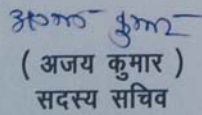 अजय कुमार
( अजय कुमार )
सदस्य सचिव